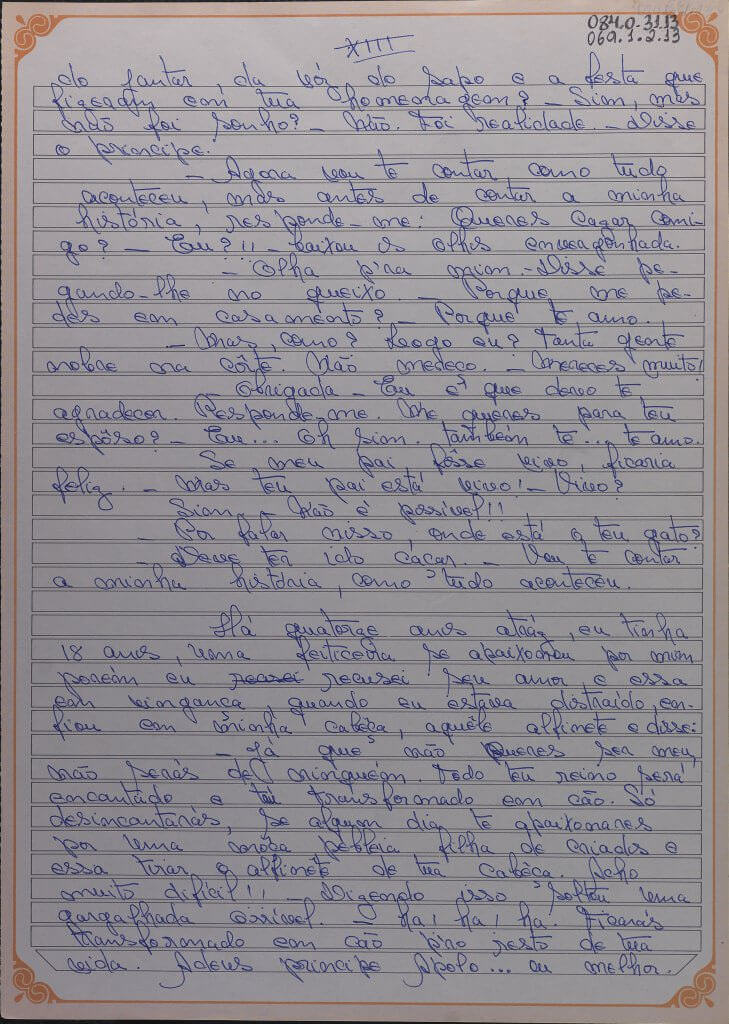 084.0.3113
069.1.2.13
XIII
do jantar, da vóz do sapo e a festa que
fizeram em tua homenagem? – Sim, mas
não foi sonho? – Não. Foi realidade. – Disse
o principe.
– Agora vou te contar, como tudo
aconteceu, mas antes de contar a minha
história, responde-me: Queres cazar comi-
go? – Eu?!! – baixou os olhos envergonhada.
– Olha p'ra mim. – Disse pe-
gando-lhe no queixo. – Porque me pe-
des em casamento? – Porque te amo.
– Mas, como? Logo eu? Tanta gente
nobre na côrte. Não mereço. – Mereces muito!
– Obrigada – Eu é que devo te
agradecer. Responde-me. Me queres para teu
espôso? – Eu... Oh sim. Também te... te amo.
Se meu pai fôsse vivo, ficaria
feliz. – Mas teu pai está vivo! – Vivo?
Sim. – Não é possivel!!
– Por falar nisso, onde está o teu gato?
– Deve ter ido caçar. – Vou te contar
a minha história, como tudo aconteceu.
Há quatorze anos atráz, eu tinha
18 anos, uma feiticeira se apaixonou por mim
porém eu recusei seu amor, e essa
em vingança, quando eu estava distraído, en-
fiou em minha cabêça, aquêle alfinete e disse:
– Já que não queres ser meu,
não serás de ninguém. Todo teu reino será
encantado e tu transformado em cão. Só
desincantarás, se algum dia te apaixonares
por uma môça plebeia filha de criados e
essa tirar o alfinete de tua cabêça. Acho
muito difícil!! – Dizendo isso soltou uma
gargalhada orrivel. – Ha! ha! ha. Ficarás
transformado em cão p'ro resto de tua
vida. Adeus principe Apolo... ou melhor.